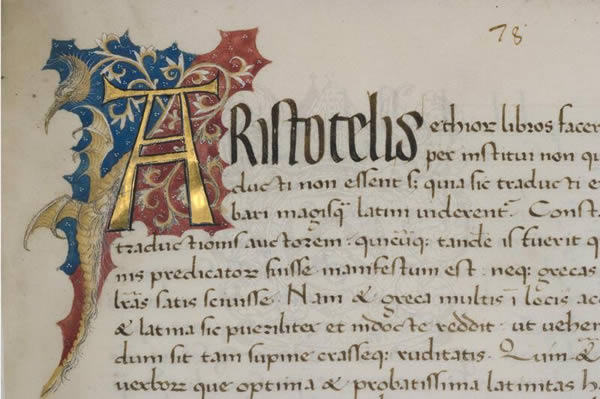 78
ARistotelis ethicor libros facer
per institui non qu
ducti non essent s; quia sic traducti e
bari magisq̃ latini viderent̃. Const
traductionis auctorem · quicūq; tandē is fuerit q
nis predicator fuisse manifestum est · neq; grecas
lrās satis scivisse. Nam & greca multis ī locis ac
& latina sic pueriliter et indocte reddit · ut vehem
dum sit tam supine crasseq; ruditatis. Quin &
verborr que optima & probatissima latinitas h